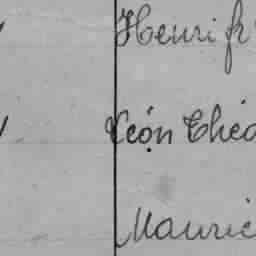 Henri fr
Léon Théo
Mauric